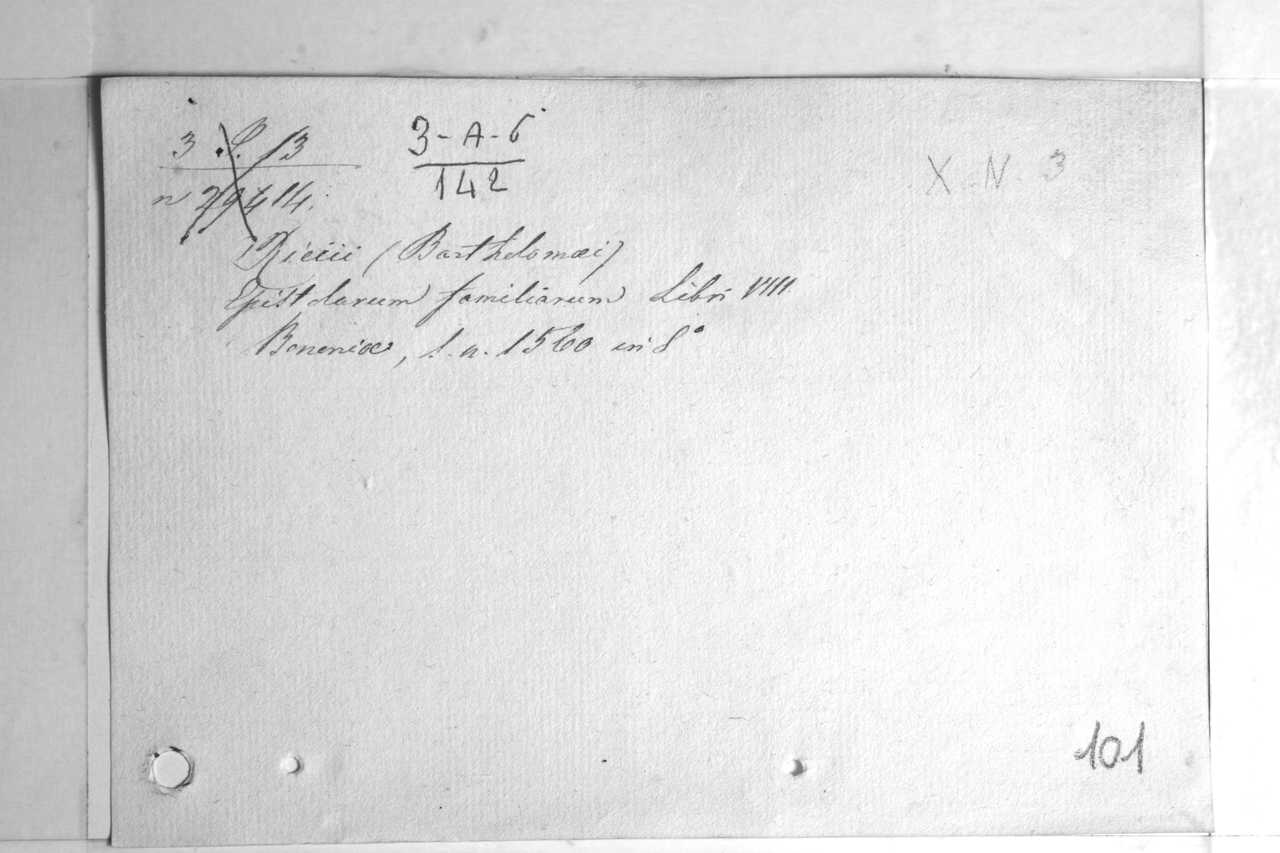 3 . S. 13
n 29414.
3-A-6
142
X. N. 3
Riccii (Bartholomæi)
Epistolarum familiarum Libri VIII
Bononiæ, s. a. 1560 in 8°
101